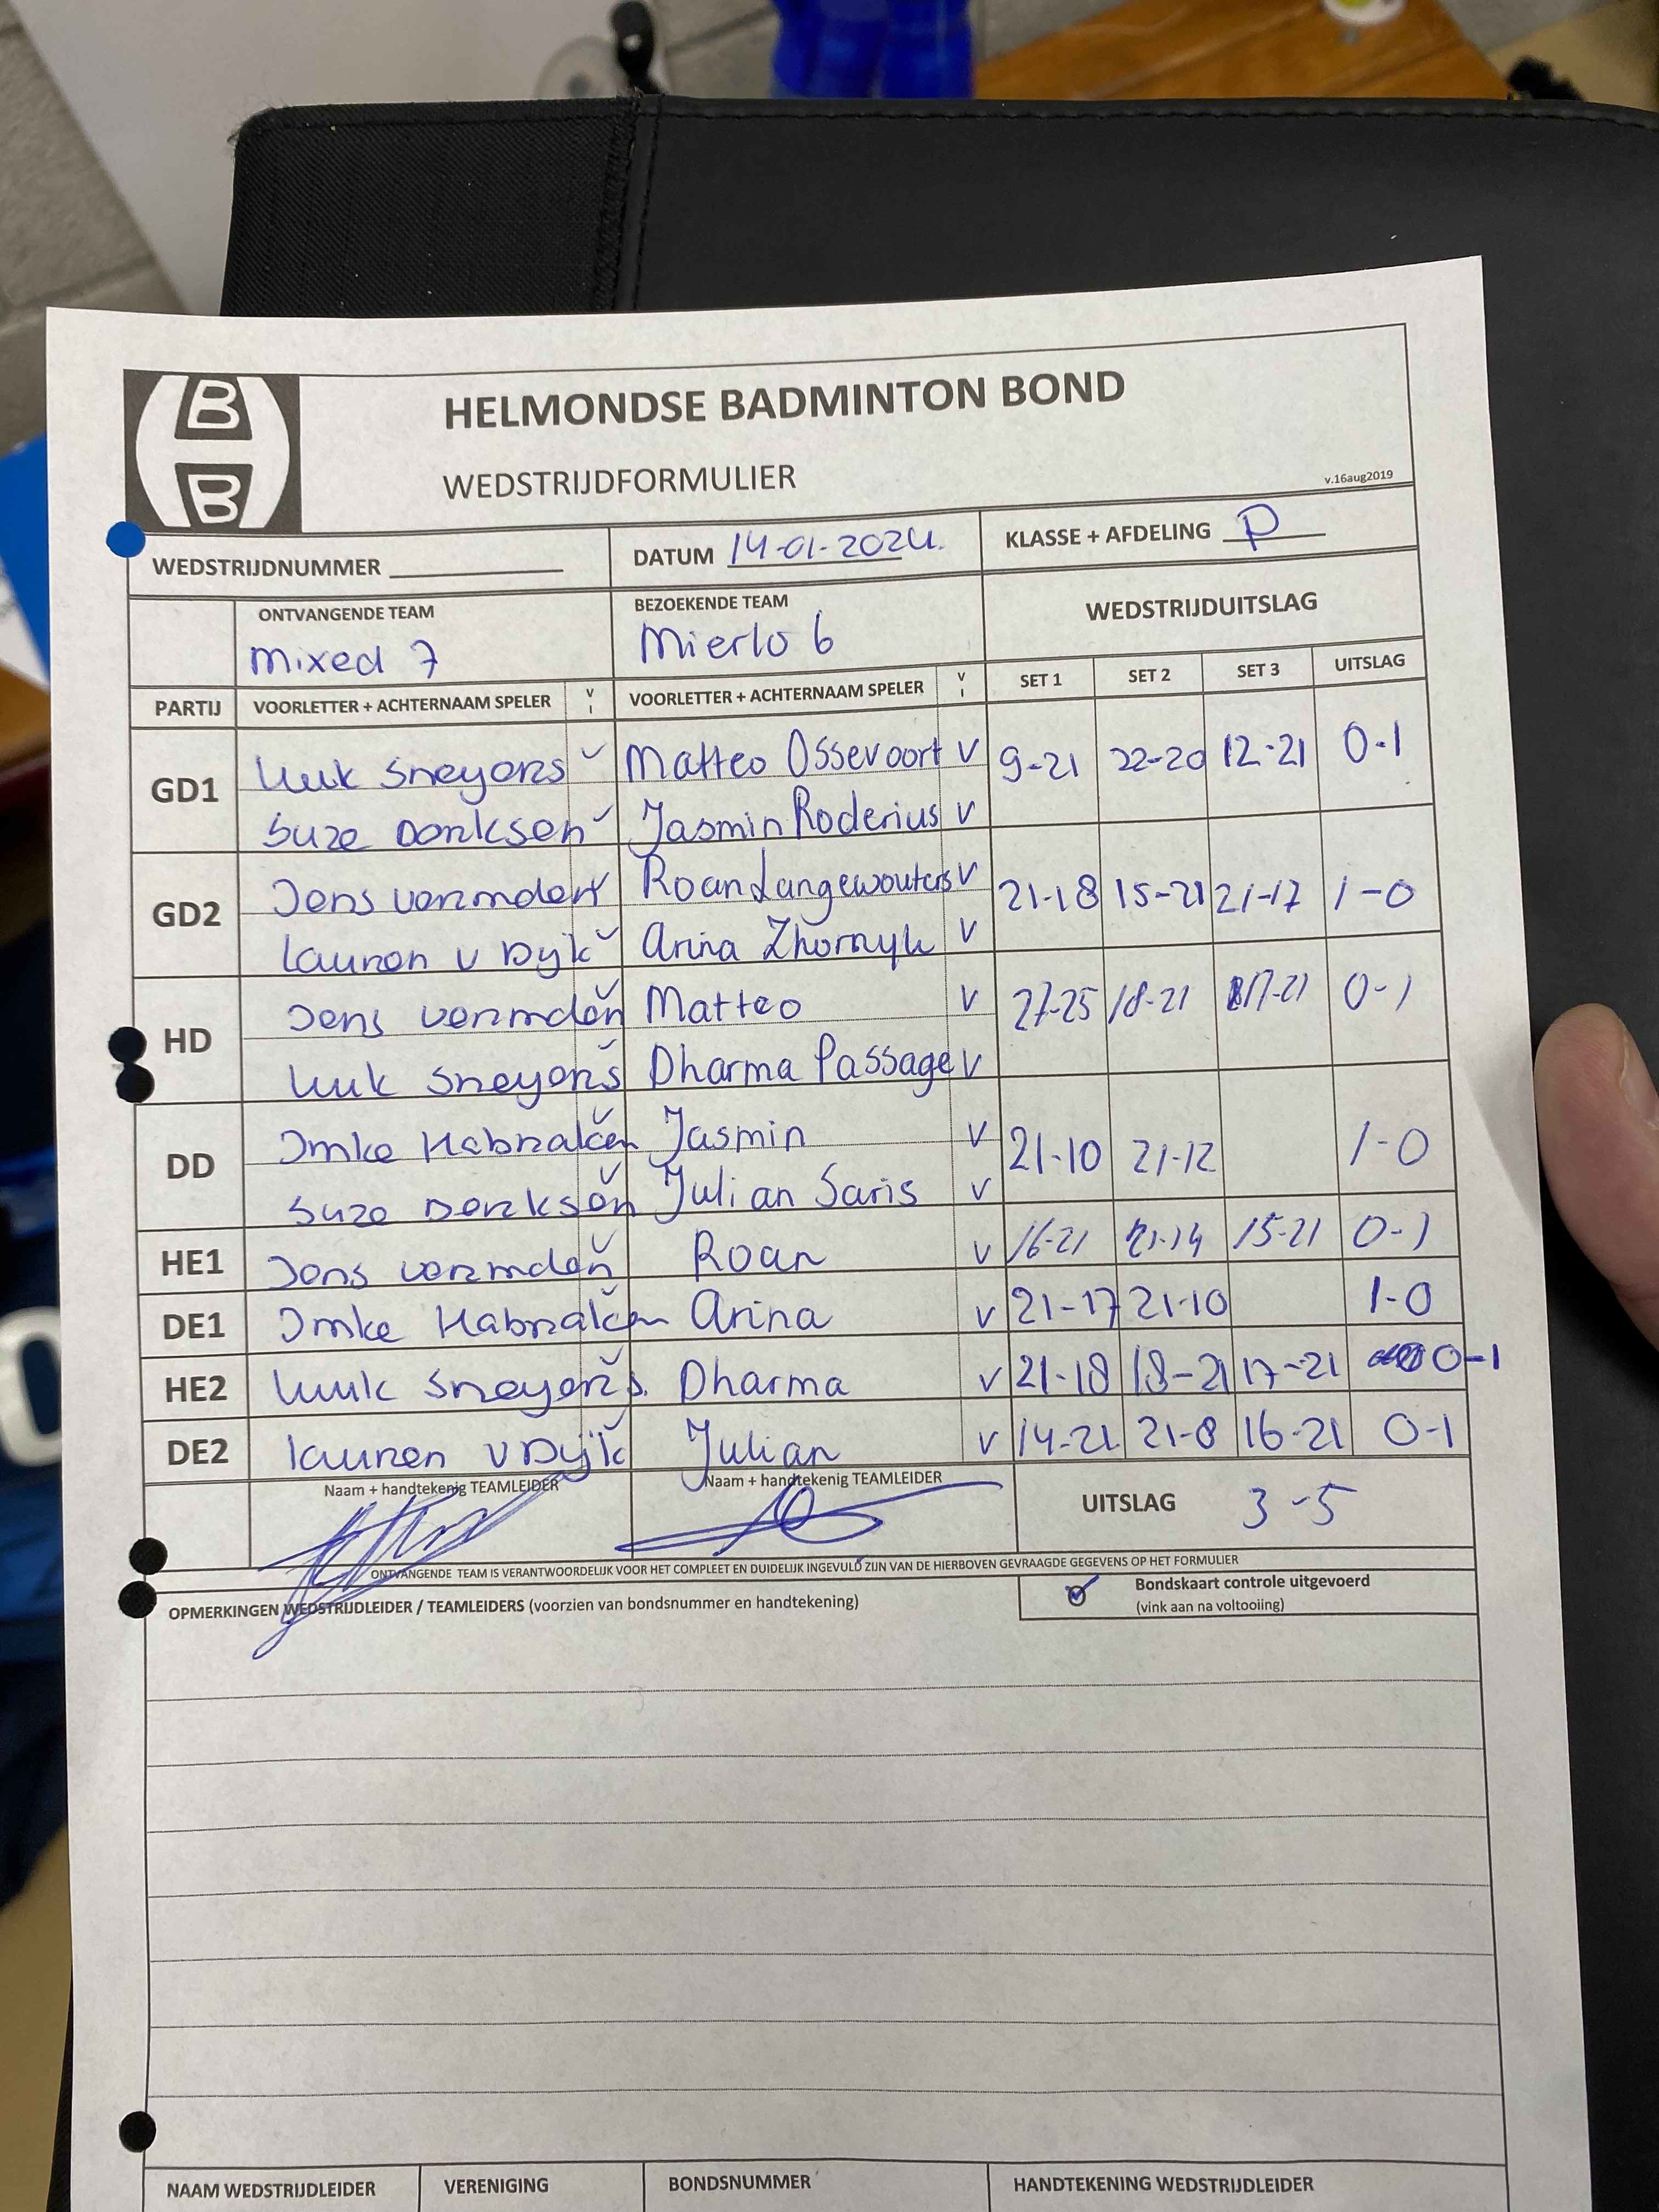 B
B
HELMONDSE BADMINTON BOND
WEDSTRIJDFORMULIER
v.16aug2019
WEDSTRIJDNUMMER DATUM 14-01-2024. KLASSE + AFDELING P
ONTVANGENDE TEAM BEZOEKENDE TEAM WEDSTRIJDUITSLAG
Mixed 7 Mierlo 6
PARTIJ VOORLETTER + ACHTERNAAM SPELER V I VOORLETTER + ACHTERNAAM SPELER V I SET 1 SET 2 SET 3 UITSLAG
GD1 Luuk Sneyers v Matteo Ossevoort v 9-21 22-20 12-21 0-1
Suze Derksen v Jasmin Roderius v
GD2 Jens v Roan Langewouters v 21-18 15-21 21-17 1-0
Lauren v Dyk v Arina Zhornyk v
HD Jens v Matteo v 27-25 18-21 17-21 0-1
Luuk Sneyers v Dharma Passage v
DD Imke Habraken v Jasmin v 21-10 21-12 1-0
Suze Derksen v Julian Saris v
HE1 Jens v Roan v 16-21 21-14 15-21 0-1
DE1 Imke Habraken v Arina v 21-17 21-10 1-0
HE2 Luuk Sneyers v Dharma v 21-18 18-21 17-21 0-1
DE2 Lauren v Dyk v Julian v 14-21 21-8 16-21 0-1
Naam + handtekenig TEAMLEIDER Naam + handtekenig TEAMLEIDER UITSLAG 3-5
ONTVANGENDE TEAM IS VERANTWOORDELIJK VOOR HET COMPLEET EN DUIDELIJK INGEVULD ZIJN VAN DE HIERBOVEN GEVRAAGDE GEGEVENS OP HET FORMULIER
OPMERKINGEN WEDSTRIJDLEIDER / TEAMLEIDERS (voorzien van bondsnummer en handtekening) Bondskaart controle uitgevoerd
(vink aan na voltooiing)
NAAM WEDSTRIJDLEIDER VERENIGING BONDSNUMMER HANDTEKENING WEDSTRIJDLEIDER